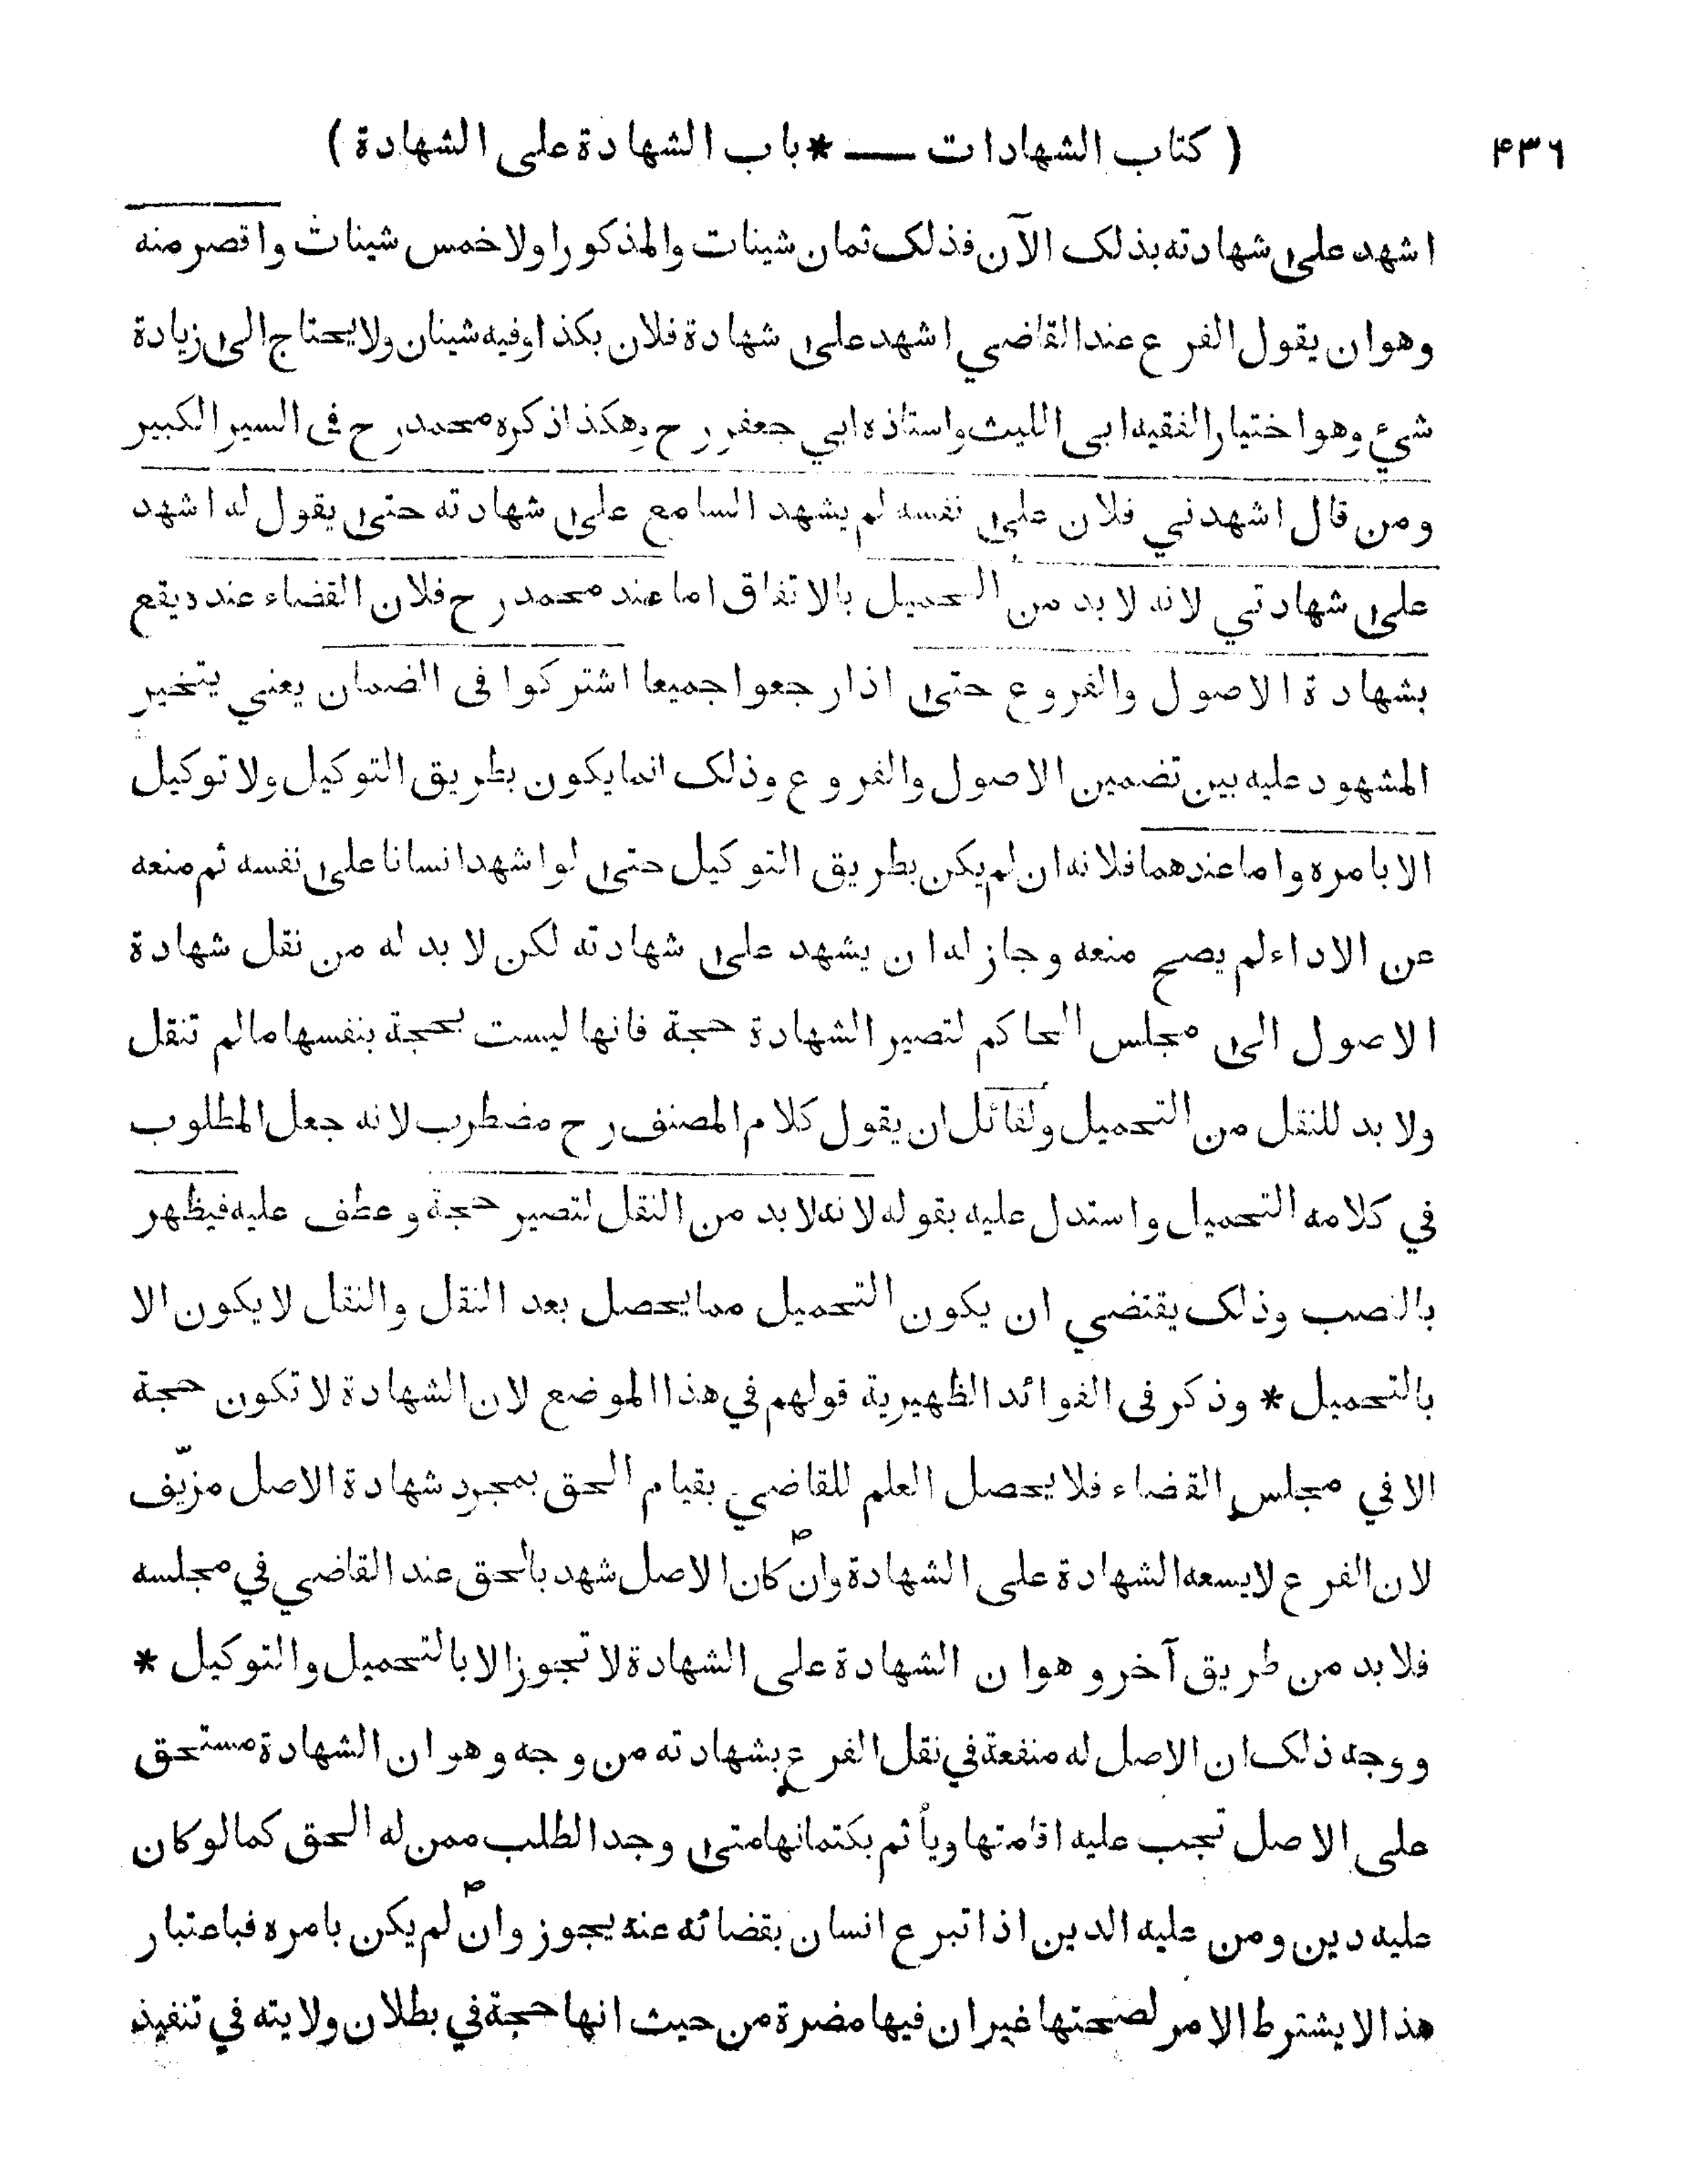 ۴۳۶
( كتاب الشهادات — * باب الشهادة على الشهادة )
اشهد على شهادته بذلك الآن فذلك ثمان شينات والمذكور اولا خمس شينات واقصر منه
وهو ان يقول الفرع عند القاضي اشهد على شهادة فلان بكذا وفيه شينان ولا يحتاج الى زيادة
شيء وهو اختيار الفقيه ابى الليث واستاذه ابي جعفر رح وهكذا ذكره محمد رح فى السير الكبير
ومن قال اشهدني فلان على نفسه لم يشهد السامع على شهادته حتى يقول له اشهد
على شهادتي لانه لا بد من التحميل بالاتفاق اما عند محمد رح فلان القضاء عنده يقع
بشهادة الاصول والفروع حتى اذا رجعوا جميعا اشتركوا فى الضمان يعني يتخير
المشهود عليه بين تضمين الاصول والفروع وذلك انما يكون بطريق التوكيل ولا توكيل
الا بامره واما عندهما فلانه ان لم يكن بطريق التوكيل حتى لو اشهد انسانا على نفسه ثم منعه
عن الاداء لم يصح منعه وجاز له ان يشهد على شهادته لكن لا بد له من نقل شهادة
الاصول الى مجلس الحاكم لتصير الشهادة حجة فانها ليست بحجة بنفسها مالم تنقل
ولا بد للنقل من التحميل ولقائل ان يقول كلام المصنف رح مضطرب لانه جعل المطلوب
في كلامه التحميل واستدل عليه بقوله لانه لا بد من النقل لتصير حجة وعطف عليه فيظهر
بالنصب وذلك يقتضي ان يكون التحميل مما يحصل بعد النقل والنقل لا يكون الا
بالتحميل * وذكر فى الفوائد الظهيرية قولهم في هذا الموضع لان الشهادة لا تكون حجة
الا في مجلس القضاء فلا يحصل العلم للقاضي بقيام الحق بمجرد شهادة الاصل مزيّف
لان الفرع لا يسعه الشهادة على الشهادة وان كان الاصل شهد بالحق عند القاضي في مجلسه
فلا بد من طريق آخر وهو ان الشهادة على الشهادة لا تجوز الا بالتحميل والتوكيل *
ووجه ذلك ان الاصل له منفعة في نقل الفرع بشهادته من وجه وهو ان الشهادة مستحق
على الاصل تجب عليه اقامتها ويأثم بكتمانها متى وجد الطلب ممن له الحق كما لو كان
عليه دين ومن عليه الدين اذا تبرع انسان بقضائه عنه يجوز وان لم يكن بامره فباعتبار
هذا لا يشترط الامر لصحتها غير ان فيها مضرة من حيث انها حجة في بطلان ولايته في تنفيذ